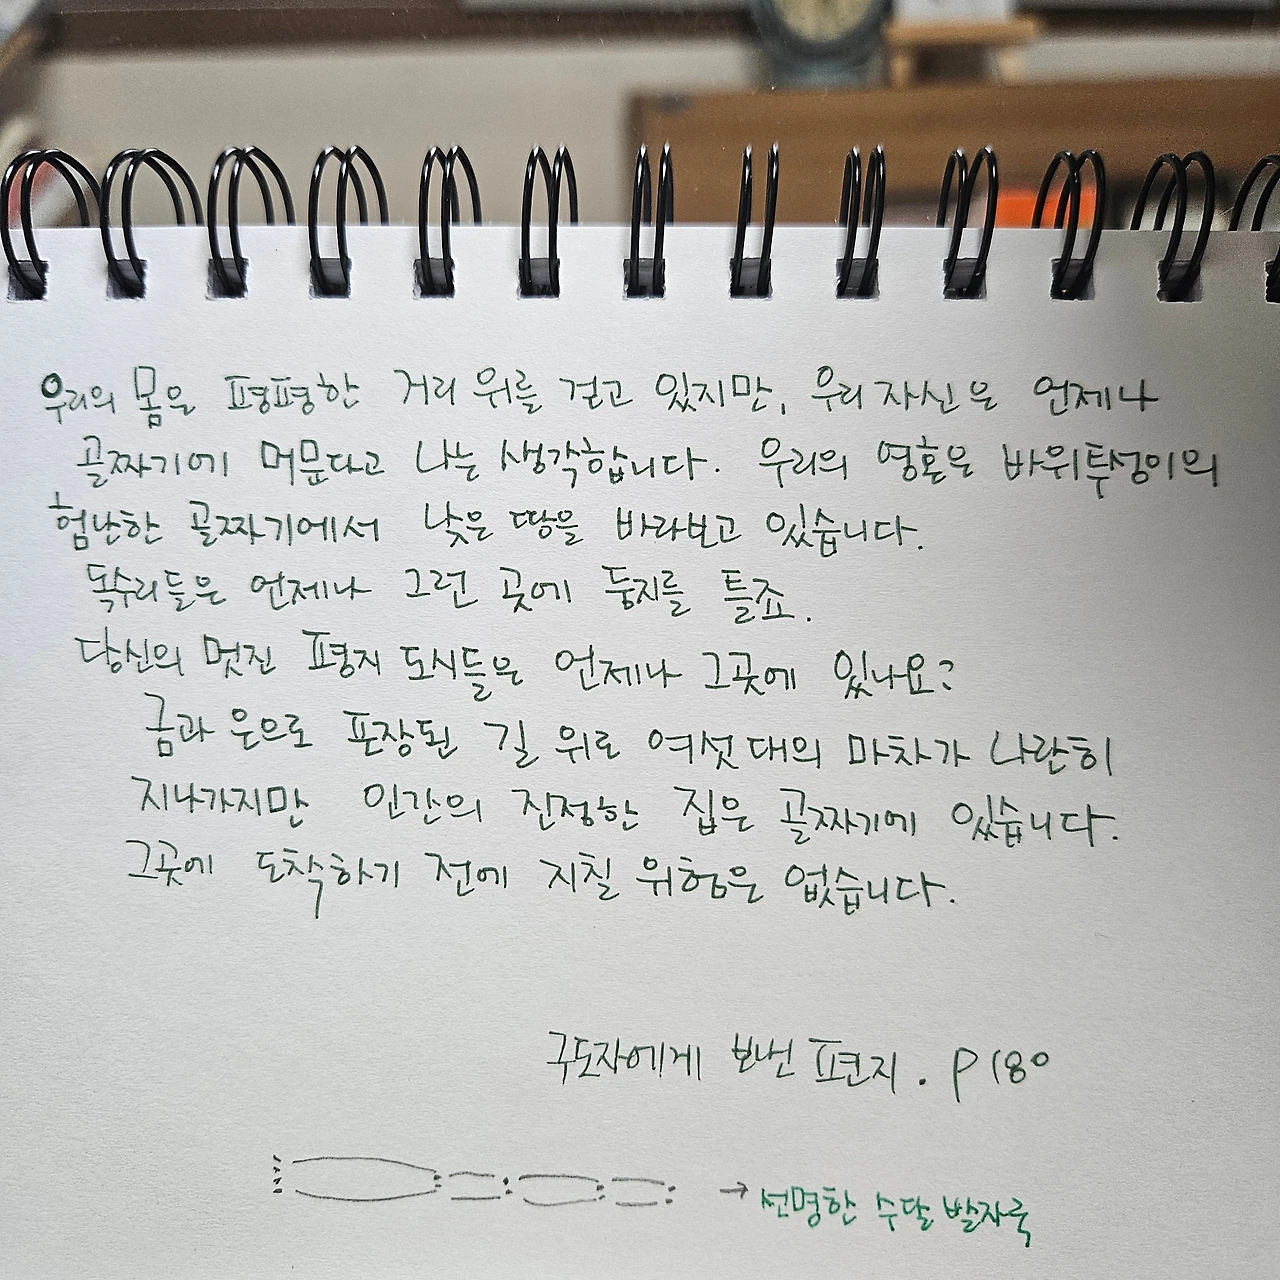 우리의 몸은 평평한 거리 위를 걷고 있지만, 우리 자신은 언제나
골짜기에 머문다고 나는 생각합니다. 우리의 영혼은 바위투성이의
험난한 골짜기에서 낮은 땅을 바라보고 있습니다.
독수리들은 언제나 그런 곳에 둥지를 틀죠.
당신의 멋진 평지 도시들은 언제나 그곳에 있나요?
금과 은으로 포장된 길 위로 여섯 대의 마차가 나란히
지나가지만 인간의 진정한 집은 골짜기에 있습니다.
그곳에 도착하기 전에 지칠 위험은 없습니다.
구도자에게 보낸 편지. P180
→ 선명한 수달 발자국